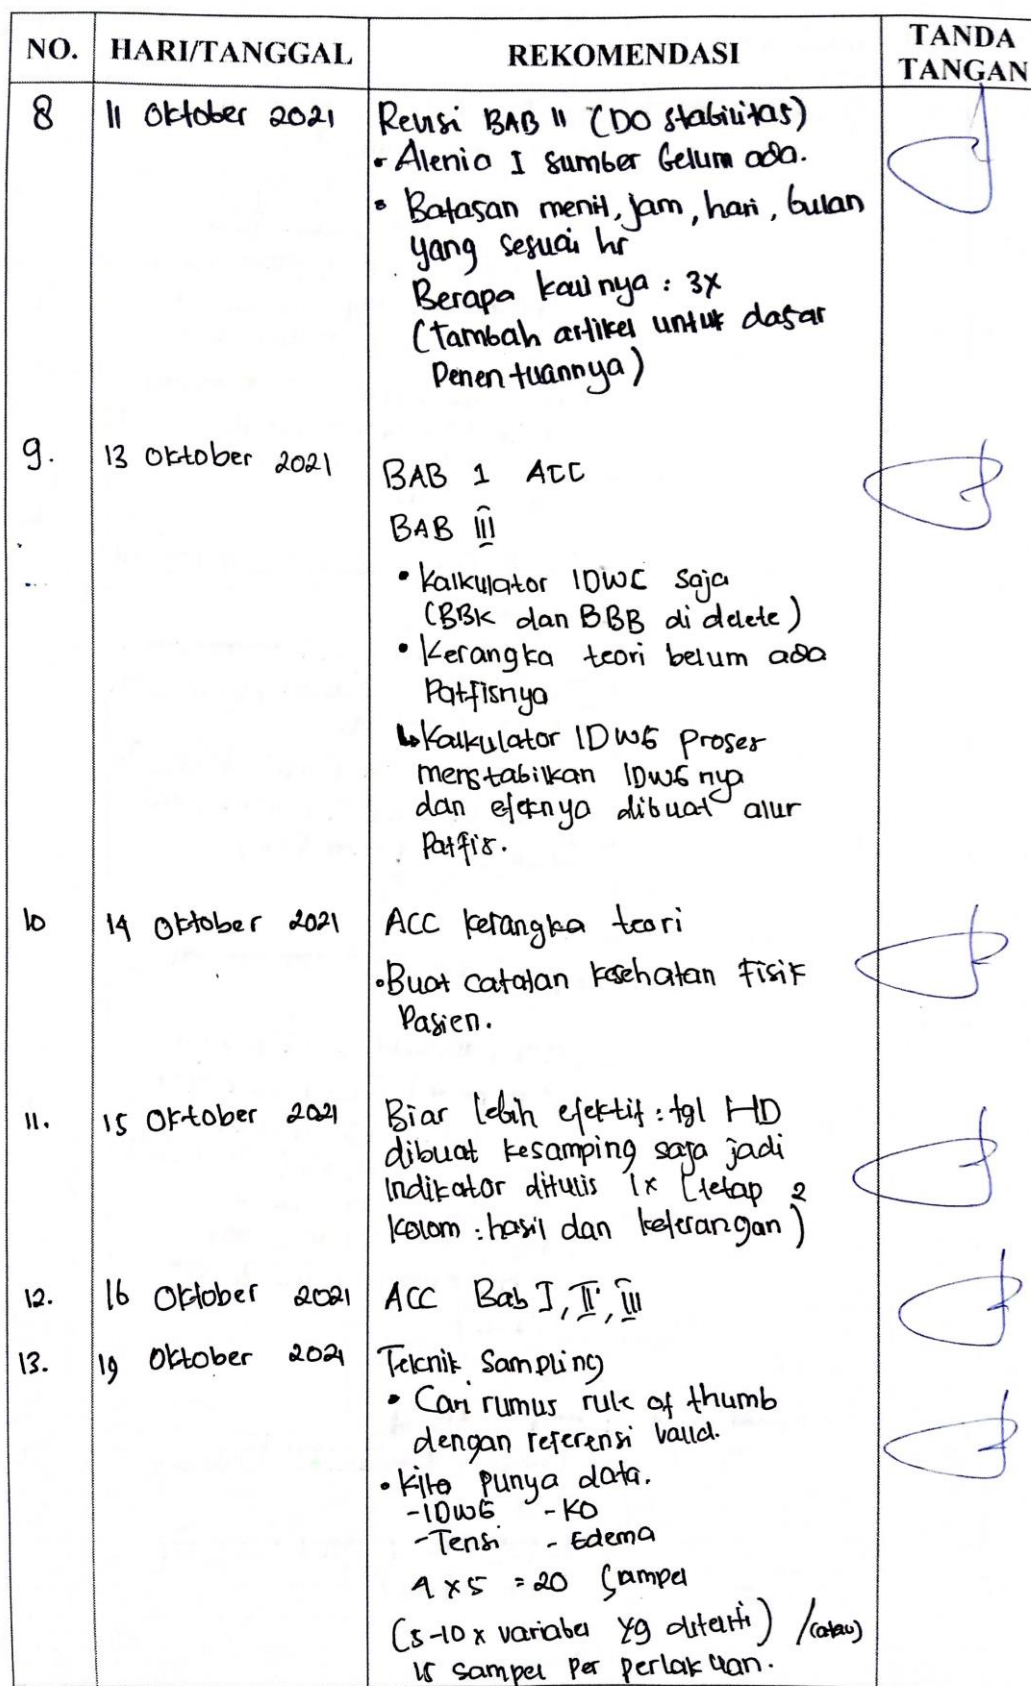 NO. HARI/TANGGAL REKOMENDASI TANDA TANGAN
8 11 Oktober 2021 Revisi BAB II (DO stabilitas)
- Alenia I sumber belum ada.
• Batasan menit, jam, hari, bulan
yang sesuai hr
Berapa kalinya : 3x
(Tambah artikel untuk dasar
Penentuannya)
9. 13 Oktober 2021 BAB 1 ACC
BAB III
• Kalkulator IDWG saja
(BBK dan BBB di delete)
• Kerangka teori belum ada
Patfisnya
↳ Kalkulator IDWG proses
menstabilkan IDWG nya
dan efeknya dibuat alur
Patfis.
10 14 Oktober 2021 ACC kerangka teori
• Buat catatan kesehatan fisik
Pasien.
11. 15 Oktober 2021 Biar lebih efektif : tgl HD
dibuat kesamping saja jadi
Indikator ditulis 1x (tetap 2
kolom : hasil dan keterangan)
12. 16 Oktober 2021 ACC Bab I, II, III
13. 19 Oktober 2021 Teknik Sampling
• Cari rumus rule of thumb
dengan referensi valid.
• Kita punya data.
- IDWG - KO
- Tensi - Edema
4 x 5 = 20 Sampel
(5-10 x variabel yg diteliti) / (atau)
15 sampel per perlakuan.